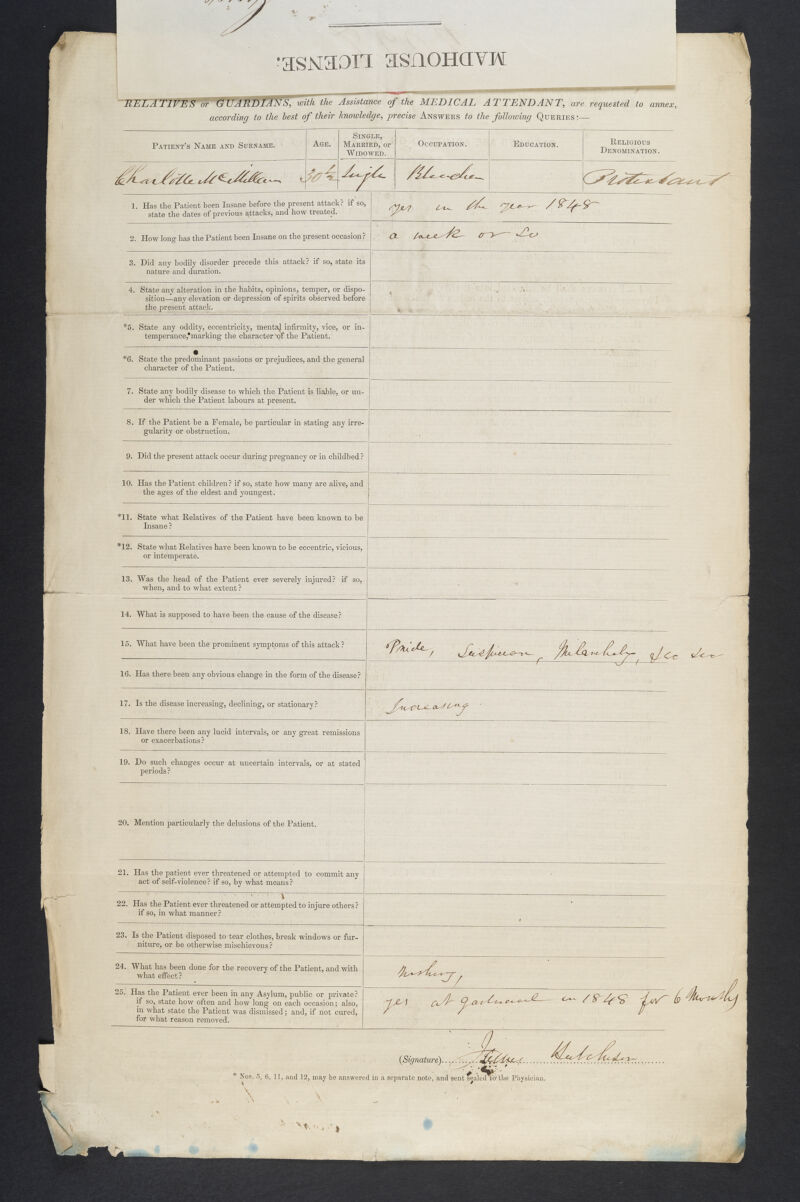 MADHOUSE LICENSE.
RELATIVES or GUARDIANS, with the Assistance of the MEDICAL ATTENDANT, are requested to annex,
according to the best of their knowledge, precise ANSWERS to the following QUERIES:—
PATIENT'S NAME AND SURNAME. AGE. SINGLE, MARRIED, OR WIDOWED. OCCUPATION. EDUCATION. RELIGIOUS DENOMINATION.
Charlotte McMillan 30½ Single Bleacher Protestant
1. Has the Patient been Insane before the present attack? if so,
state the dates of previous attacks, and how treated.
yes in the year 1848
2. How long has the Patient been Insane on the present occasion?
a week or so
3. Did any bodily disorder precede this attack? if so, state its
nature and duration.
4. State any alteration in the habits, opinions, temper, or dispo-
sition—any elevation or depression of spirits observed before
the present attack.
*5. State any oddity, eccentricity, mental infirmity, vice, or in-
temperance, marking the character of the Patient.
*6. State the predominant passions or prejudices, and the general
character of the Patient.
7. State any bodily disease to which the Patient is liable, or un-
der which the Patient labours at present.
8. If the Patient be a Female, be particular in stating any irre-
gularity or obstruction.
9. Did the present attack occur during pregnancy or in childbed?
10. Has the Patient children? if so, state how many are alive, and
the ages of the eldest and youngest.
*11. State what Relatives of the Patient have been known to be
Insane?
*12. State what Relatives have been known to be eccentric, vicious,
or intemperate.
13. Was the head of the Patient ever severely injured? if so,
when, and to what extent?
14. What is supposed to have been the cause of the disease?
15. What have been the prominent symptoms of this attack?
Pride, Suspicion, Milancholy, &c &c
16. Has there been any obvious change in the form of the disease?
17. Is the disease increasing, declining, or stationary?
Increasing
18. Have there been any lucid intervals, or any great remissions
or exacerbations?
19. Do such changes occur at uncertain intervals, or at stated
periods?
20. Mention particularly the delusions of the Patient.
21. Has the patient ever threatened or attempted to commit any
act of self-violence? if so, by what means?
22. Has the Patient ever threatened or attempted to injure others?
if so, in what manner?
23. Is the Patient disposed to tear clothes, break windows or fur-
niture, or be otherwise mischievous?
24. What has been done for the recovery of the Patient, and with
what effect?
25. Has the Patient ever been in any Asylum, public or private?
if so, state how often and how long on each occasion; also,
in what state the Patient was dismissed; and, if not cured,
for what reason removed.
yes at in 1848 for 6 Months
(Signature) James Hutcheson
* Nos. 5, 6, 11, and 12, may be answered in a separate note, and sent sealed to the Physician.